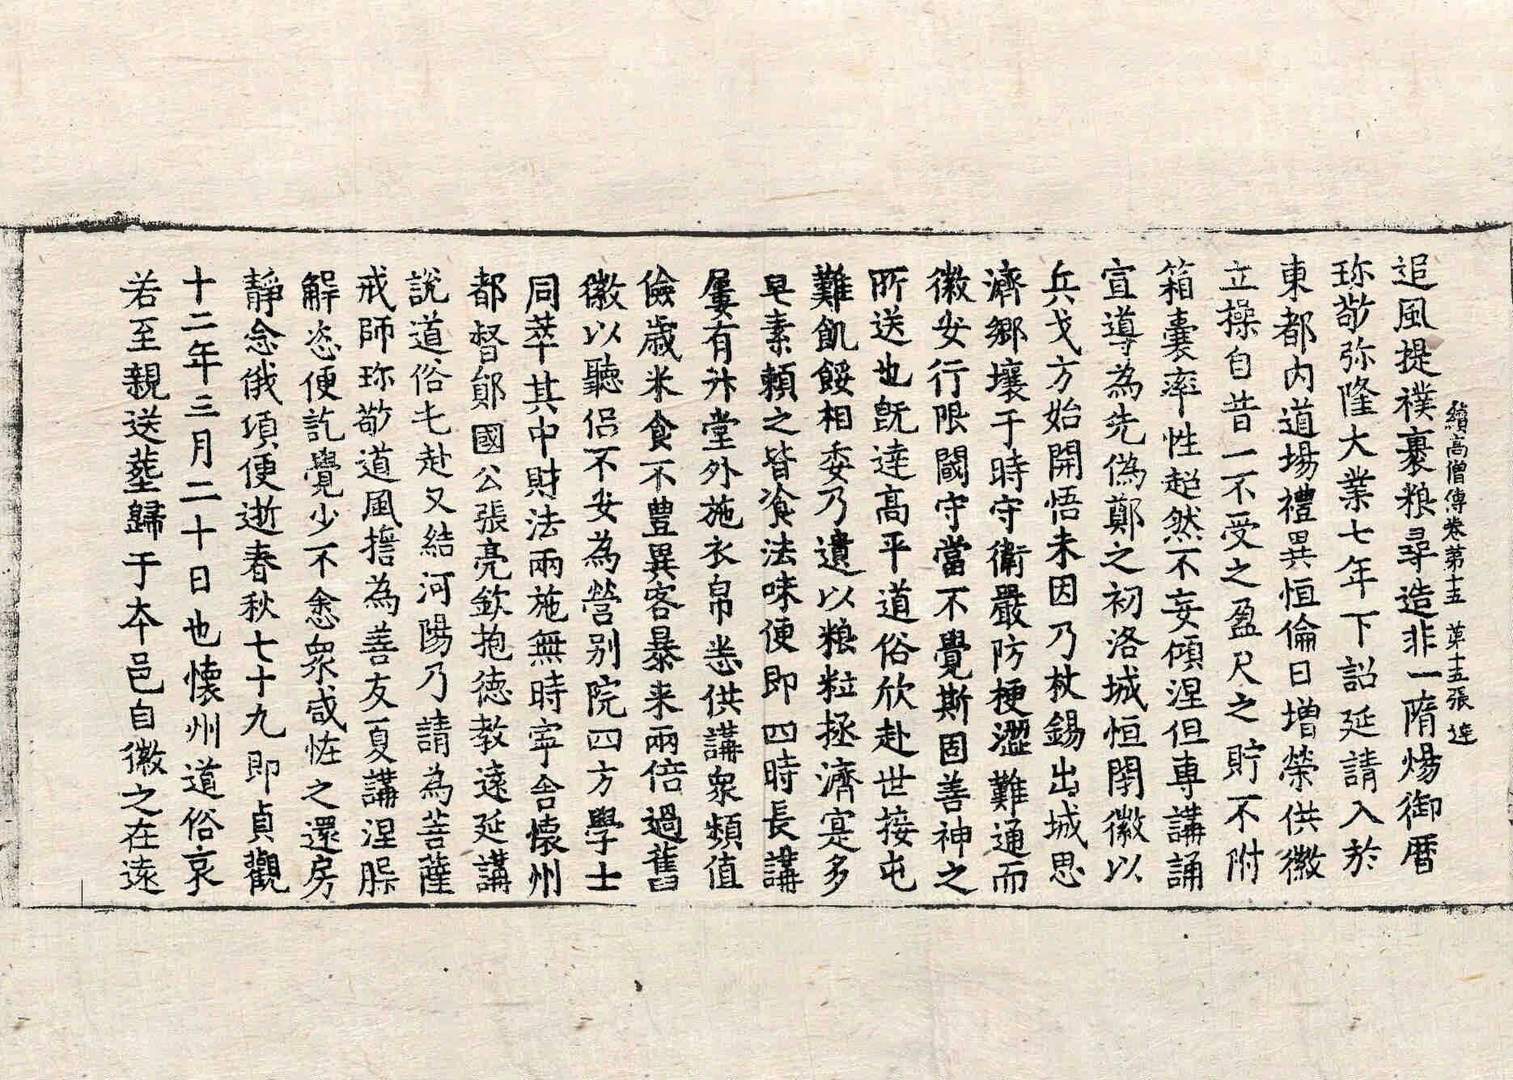 續高僧傳卷第十五 第十五張 達
追風提襆裹粮尋造非一隋煬御曆
珎敬弥隆大業七年下詔延請入於
東都內道場禮異恒倫日增榮供徽
立操自昔一不受之盈尺之貯不附
箱囊率性超然不妄傾涅但專講誦
宣導為先偽鄭之初洛城恒閉徽以
兵戈方始開悟未因乃杖錫出城思
濟鄉壤于時守衛嚴防梗澀難通而
徽安行限閾守當不覺斯固善神之
所送也既達高平道俗欣赴世接屯
難飢餒相委乃遺以粮粒拯濟寔多
皂素賴之皆飡法味便即四時長講
屢有升堂外施衣帛悉供講衆頻值
儉歲米食不豊異客暴来兩倍過舊
徽以聽侣不安為營别院四方學士
同萃其中財法兩施無時寧舍懷州
都督鄖國公張亮欽抱德教遠延講
說道俗屯赴又結河陽乃請為菩薩
戒師珎敬道風擔為善友夏講涅槃
解恣便訖覺少不悆衆咸恠之還房
靜念俄頃便逝春秋七十九即貞觀
十二年三月二十日也懷州道俗哀
若至親送葬歸于本邑自徽之在遠